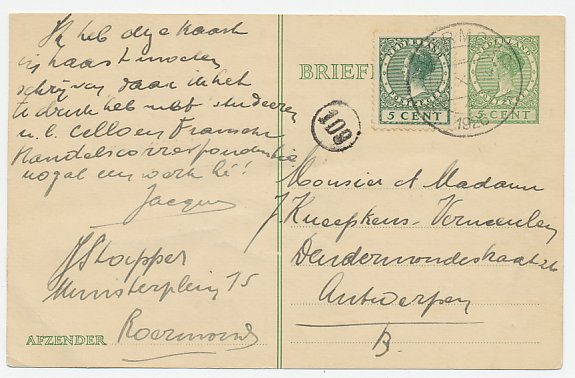 Ik heb deze kaart
in haast moeten
schrijven daar ik het
te druk heb met studeeren
n.l. cello en Fransche
Handelscorrespondentie
nogal een werk hè!
Jacques
J Stapper
Munsterplein 15
Roermond
AFZENDER
BRIEFK
NEDERLAND
5 CENT
5 CENT
109
Monsier et Madame
J Kneepkens-Vermeulen
Dendermondestraat 26
Antwerpen
B.